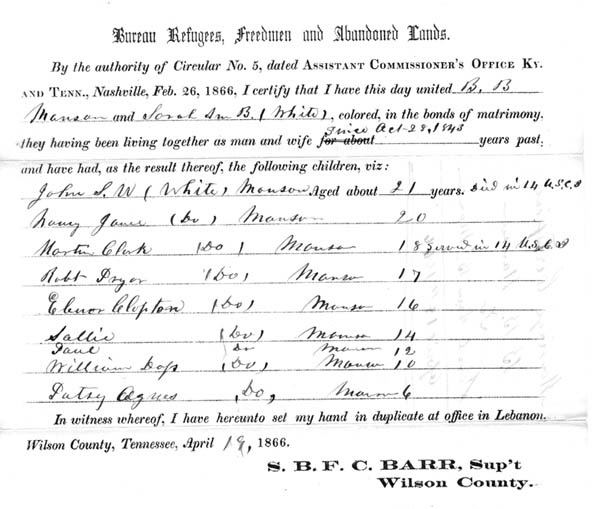 Bureau Refugees, Freedmen and Abandoned Lands.
By the authority of Circular No. 5, dated Assistant Commissioner's Office Ky.
and Tenn., Nashville, Feb. 26, 1866, I certify that I have this day united B. B
Manson and Sarah Ann B. (White), colored, in the bonds of matrimony.
they having been living together as man and wife for about since Oct-28, 1843 years past,
and have had, as the result thereof, the following children, viz:
John S. W (White) Manson Aged about 21 years. Died in 14 U.S.C.I
Nancy Jane (Do) Manson 20
Martin Clark (Do) Manson 18 Served in 14 U.S.C.I
Robt Pryor (Do) Manson 17
Elenor Clopton (Do) Manson 16
Sallie (Do) Manson 14
Paul Do Manson 12
William (Do) Manson 10
Patsy Agnes Do, Manson 6
In witness whereof, I have hereunto set my hand in duplicate at office in Lebanon.
Wilson County, Tennessee, April 19, 1866.
S. B. F. C. BARR, Sup't
Wilson County.